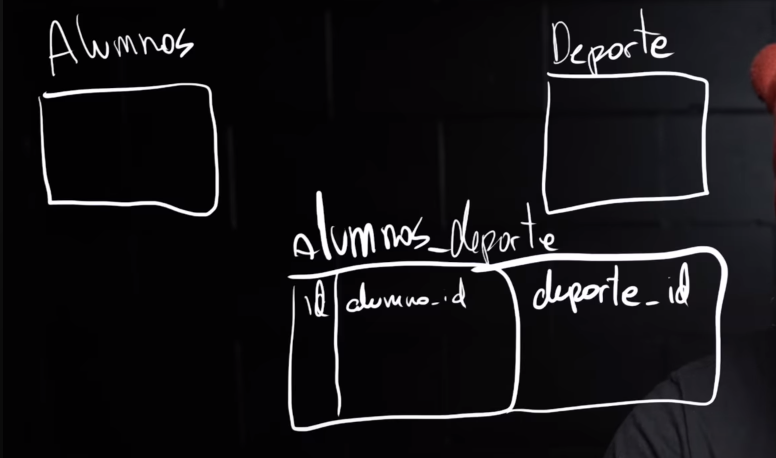 Alumnos
Deporte
Alumnos_deporte
id alumno_id deporte_id